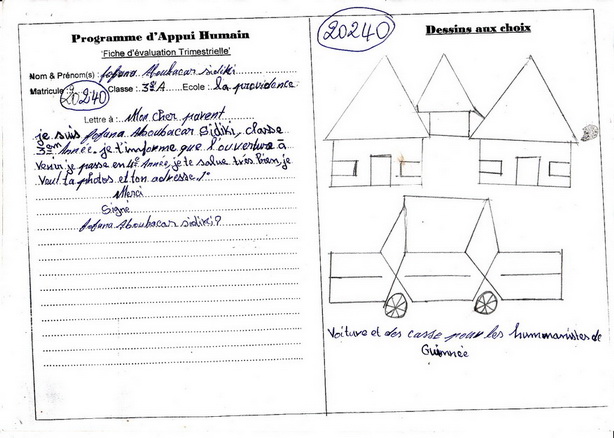 Programme d'Appui Humain
'Fiche d'évaluation Trimestrielle'
Nom & Prénom(s) : Fofana Aboubacar sidiki
Matricule : 20240 Classe : 3è A Ecole : la providence
Lettre à : Mon cher parent
je suis Fofana Aboubacar Sidiki, classe
3ièm Année. je t'informe que l'ouverture à
venir je passe en 4è Année je te salue très bien, je
veut ta photos et ton adresse 1°
Merci
Signe
Fofana Aboubacar sidiki?
20240
Dessins aux choix
Voiture et des casse pour les hummanistes de
Guinnée